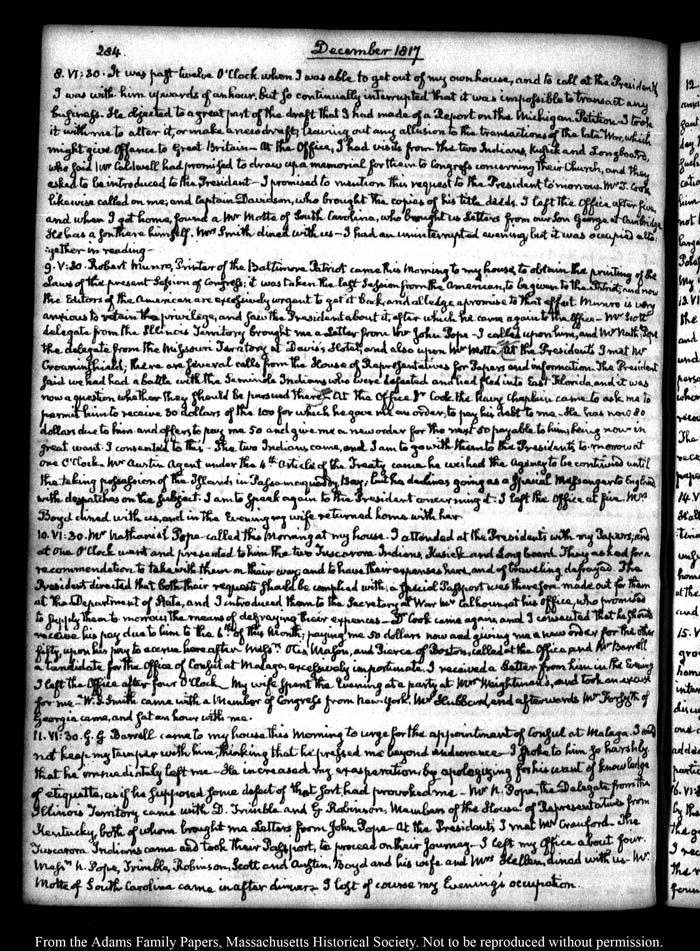 284
December 1817
8. VI:30. It was past twelve O'Clock when I was able to get out of my own house, and to call at the President's
I was with him upwards of an hour, but so continually interrupted that it was impossible to transact any
business. He objected to a great part of the draft that I had made of a Report on the Michigan Petition. I took
it with me to alter it, or make a new draft, leaving out any allusion to the transactions of the late War, which
might give Offence to Great Britain. At the Office, I had visits from the two Indians, Kusick and Longboard,
who said Mr Caldwell had promised to draw up a memorial for them to Congress concerning their Church, and they
asked to be introduced to the President. I promised to mention this request to the President to-morrow. Mr I. Cook
likewise called on me; and Captain Davidson, who brought the copies of his title deeds. I left the Office after five,
and when I got home, found a Mr Motte of South Carolina, who brought us Letters from our Son George at Cambridge
He has a son there himself. Mrs Smith dined with us. I had an uninterrupted evening, but it was occupied alto-
:gether in reading.
9. V:30. Robert Munro, Printer of the Baltimore Patriot came this Morning to my house, to obtain the printing of the
Laws of the present Session of Congress; it was taken the last Session from the American, to be given to the Patriot, and now
the Editors of the American are excessively urgent to get it back, and alledge a promise to that effect. Munro is very
anxious to retain the privilege, and saw the President about it, after which he came again to the Office. Mr Scott
delegate from the Missouri Territory at Davis's Hotel, and also upon Mr Motte. At the Presidents I met Mr
Crowninshield; there are several calls from the House of Representatives for Papers and information. The President
said we had had a battle with the Seminole Indians who were defeated and had fled into East Florida, and it was
now a question whether they should be pursued there. At the Office Dr Cook the Navy Chaplain came to ask me to
permit him to receive 30 dollars of the 100 for which he gave me an order, to pay his debt to me. He has now 80
dollars due to him and offers to pay me 50 and give me a new order for the next 50 payable to him, being now in
great want. I consented to this. The two Indians came, and I am to go with them to the Presidents to-morrow at
one O'Clock. Mr Austin Agent under the 4th Article of the Treaty came he wished the Agency to be continued until
the taking possession of the Islands in Passamaquoddy Bay, but he declines going as a Special Messenger to England
with despatches on the subject. I am to speak again to the President concerning it. I left the Office at five. Mrs
Boyd dined with us, and in the Evening my wife returned home with her.
10. VI:30. Mr Nathaniel Pope called this Morning at my house. I attended at the Presidents with my Papers, and
at one O'Clock went and presented to him the two Tuscarora Indians, Kusick and Longboard. They asked for a
recommendation to take with them on their way, and to have their expenses here, and of traveling defrayed. The
President directed that both their requests should be complied with; a special Passport was therefore made out for them
at the Department of State, and I introduced them to the Secretary of War Mr Calhoun at his office, who promised
to supply them to-morrow the means of defraying their expences. Dr Cook came again, and I consented that he should
receive his pay due to him to the 6th of this Month; paying me 50 dollars now and giving me a new order for the other
fifty, upon his pay to accrue hereafter. Messrs Otis, Mason, and Pierce of Boston, called at the Office and Mr Barrell
a candidate for the Office of Consul at Malaga, excessively importunate. I received a Letter from him in the Evening
I left the Office after four O'Clock. My wife spent the Evening at a party at Mrs Weightman's, and took an excuse
for me. W. S. Smith came with a Member of Congress from New-York, Mr Hubbard, and afterwards Mr Forsyth of
Georgia came, and sat an hour with me.
11. VI:30. G. G. Barrell came to my house this morning to urge for the appointment of Consul at Malaga. I could
not keep my temper with him, thinking that he pressed me beyond endurance. I spoke to him so harshly
that he immediately left me. He increased my exasperation, by apologizing for his want of knowledge
of etiquette, as if he supposed some defect of that sort had provoked me. Mr N. Pope, the Delegate from the
Illinois Territory came with D. Trimble and G. Robinson, Members of the House of Representatives from
Kentucky, both of whom brought me Letters from John Pope. At the Presidents I met Mr Crawford. The
Tuscarora Indians came and took their Passport, to proceed on their Journey. I left my Office about four.
Messrs N. Pope, Trimble, Robinson, Scott and Austin, Boyd and his wife and Mrs Hellen, dined with us. Mr
Motte of South Carolina came in after dinner. I lost of course my Evening's occupation.
From the Adams Family Papers, Massachusetts Historical Society. Not to be reproduced without permission.